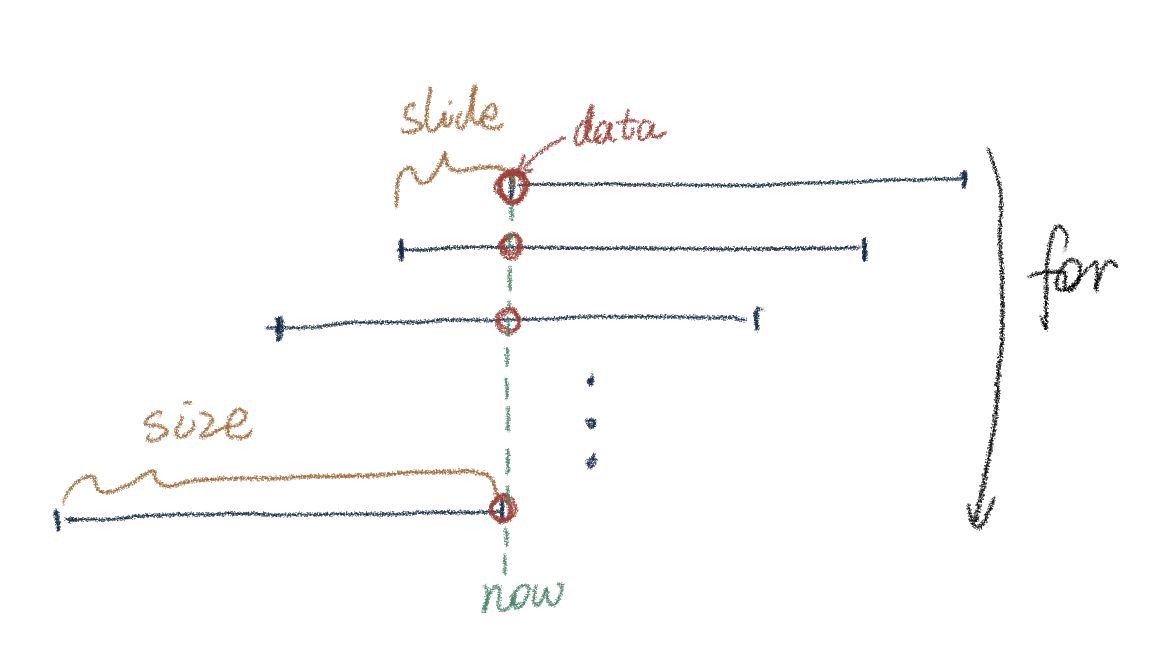 slide
data
for
size
now